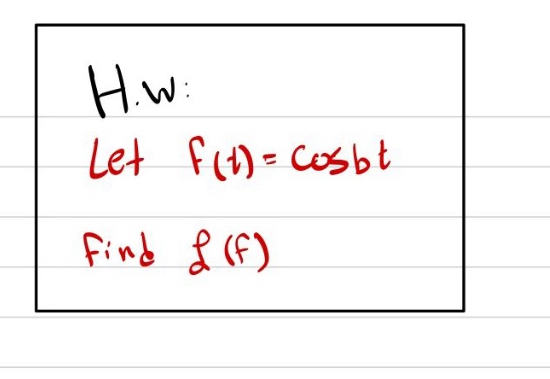 H.W:
Let f(t) = cosbt
Find ℒ(f)